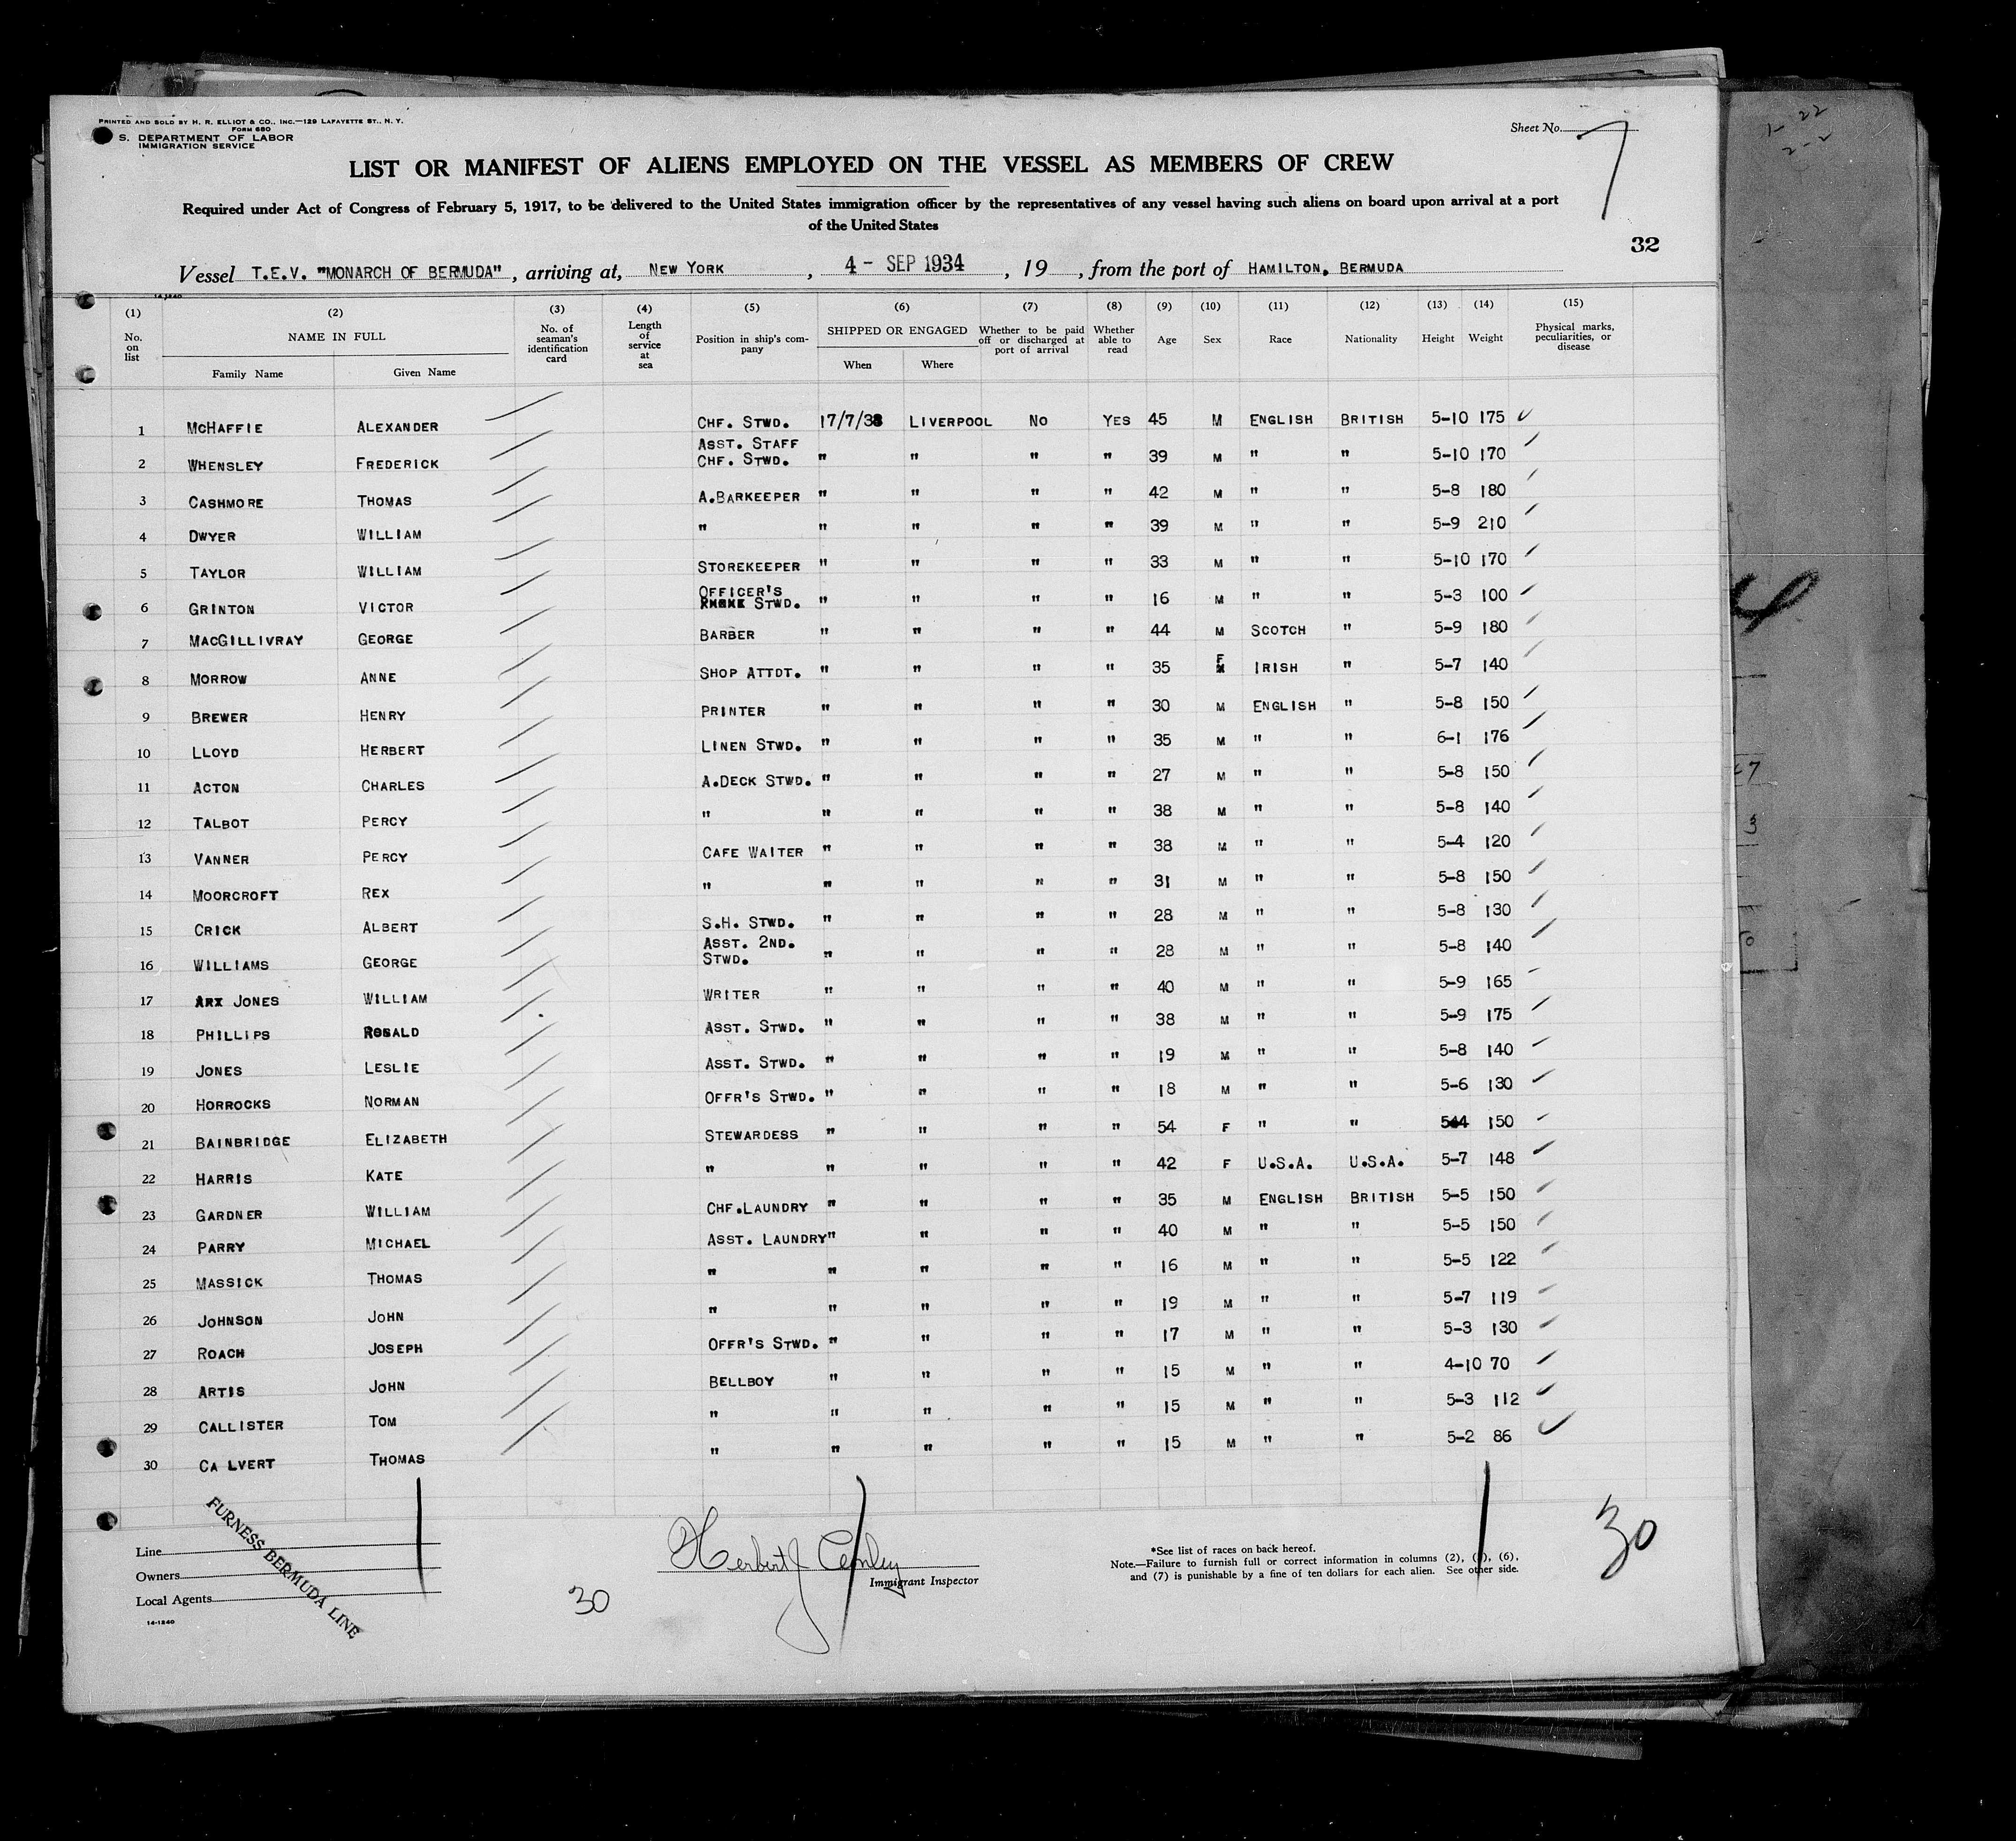 PRINTED AND SOLD BY H. R. ELLIOT & CO., INC.—129 LAFAYETTE ST., N. Y.
FORM 680
S. DEPARTMENT OF LABOR
IMMIGRATION SERVICE
Sheet No. 7
LIST OR MANIFEST OF ALIENS EMPLOYED ON THE VESSEL AS MEMBERS OF CREW
Required under Act of Congress of February 5, 1917, to be delivered to the United States immigration officer by the representatives of any vessel having such aliens on board upon arrival at a port
of the United States
32
Vessel T.E.V. "MONARCH OF BERMUDA", arriving at, NEW YORK, 4 - SEP 1934, 19, from the port of HAMILTON, BERMUDA
14-1240
(1) (2) (3) (4) (5) (6) (7) (8) (9) (10) (11) (12) (13) (14) (15)
No. on list NAME IN FULL Family Name Given Name No. of seaman's identification card Length of service at sea Position in ship's company SHIPPED OR ENGAGED When Where Whether to be paid off or discharged at port of arrival Whether able to read Age Sex Race Nationality Height Weight Physical marks, peculiarities, or disease
1 MCHAFFIE ALEXANDER CHF. STWD. 17/7/33 LIVERPOOL NO YES 45 M ENGLISH BRITISH 5-10 175
2 WHENSLEY FREDERICK ASST. STAFF CHF. STWD. " " " " 39 M " " 5-10 170
3 CASHMORE THOMAS A.BARKEEPER " " " " 42 M " " 5-8 180
4 DWYER WILLIAM " " " " " 39 M " " 5-9 210
5 TAYLOR WILLIAM STOREKEEPER " " " " 33 M " " 5-10 170
6 GRINTON VICTOR OFFICER'S STWD. " " " " 16 M " " 5-3 100
7 MACGILLIVRAY GEORGE BARBER " " " " 44 M SCOTCH " 5-9 180
8 MORROW ANNE SHOP ATTDT. " " " " 35 F IRISH " 5-7 140
9 BREWER HENRY PRINTER " " " " 30 M ENGLISH " 5-8 150
10 LLOYD HERBERT LINEN STWD. " " " " 35 M " " 6-1 176
11 ACTON CHARLES A.DECK STWD. " " " " 27 M " " 5-8 150
12 TALBOT PERCY " " " " " 38 M " " 5-8 140
13 VANNER PERCY CAFE WAITER " " " " 38 M " " 5-4 120
14 MOORCROFT REX " " " " " 31 M " " 5-8 150
15 CRICK ALBERT S.H. STWD. " " " " 28 M " " 5-8 130
16 WILLIAMS GEORGE ASST. 2ND. STWD. " " " " 28 M " " 5-8 140
17 JONES WILLIAM WRITER " " " " 40 M " " 5-9 165
18 PHILLIPS ASST. STWD. " " " " 38 M " " 5-9 175
19 JONES LESLIE ASST. STWD. " " " " 19 M " " 5-8 140
20 HORROCKS NORMAN OFFR'S STWD. " " " " 18 M " " 5-6 130
21 BAINBRIDGE ELIZABETH STEWARDESS " " " " 54 F " " 150
22 HARRIS KATE " " " " " 42 F U.S.A. U.S.A. 5-7 148
23 GARDNER WILLIAM CHF.LAUNDRY " " " " 35 M ENGLISH BRITISH 5-5 150
24 PARRY MICHAEL ASST. LAUNDRY " " " " 40 M " " 5-5 150
25 MASSICK THOMAS " " " " " 16 M " " 5-5 122
26 JOHNSON JOHN " " " " " 19 M " " 5-7 119
27 ROACH JOSEPH OFFR'S STWD. " " " " 17 M " " 5-3 130
28 ARTIS JOHN BELLBOY " " " " 15 M " " 4-10 70
29 CALLISTER TOM " " " " " 15 M " " 5-3 112
30 CA LVERT THOMAS " " " " " 15 M " " 5-2 86
Line
Owners
Local Agents
FURNESS BERMUDA LINE
14-1240
30
Herbert J Conley
Immigrant Inspector
*See list of races on back hereof.
Note.—Failure to furnish full or correct information in columns (2), (6),
and (7) is punishable by a fine of ten dollars for each alien. See other side.
30